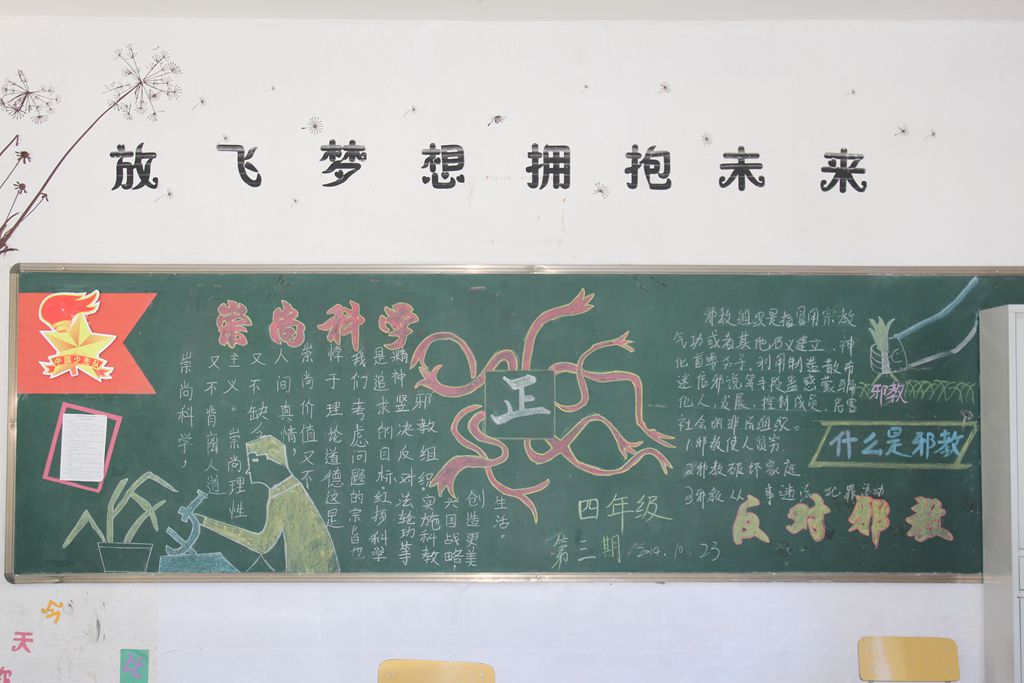 放飞梦想拥抱未来
中国少先队
崇尚科学
崇尚科学，
又不背离人道
主义。崇尚理性
又不缺乏
人间真情，
崇尚价值又不
悖于理论道德这是
我们考虑问题的宗旨也
是追求的目标红扬科学
精神坚决反对法轮功等
邪教组织实施科教
兴国战略
创造更美
生活。
正
四年级
第三期 2014.10.23
邪教组织是指冒用宗教
气功或者其他名义建立、神
化首要分子、利用制造散布
迷信邪说等手段蛊惑蒙骗
他人，发展、控制成员、危害
社会的非法组织。
1.邪教使人贫穷
2邪教破坏家庭
3邪教从事违法犯罪活动
邪教
什么是邪教
反对邪教
今
天